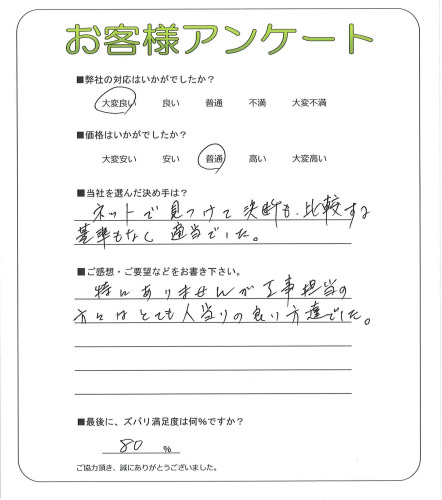 お客様アンケート
■弊社の対応はいかがでしたか？
大変良い　良い　普通　不満　大変不満
■価格はいかがでしたか？
大変安い　安い　普通　高い　大変高い
■当社を選んだ決め手は？
ネットで見つけて決断も、比較する
基準もなく適当でした。
■ご感想・ご要望などをお書き下さい。
特にありませんが工事担当の
方々はとても人当りの良い方達でした。
■最後に、ズバリ満足度は何%ですか？
80 %
ご協力頂き、誠にありがとうございました。